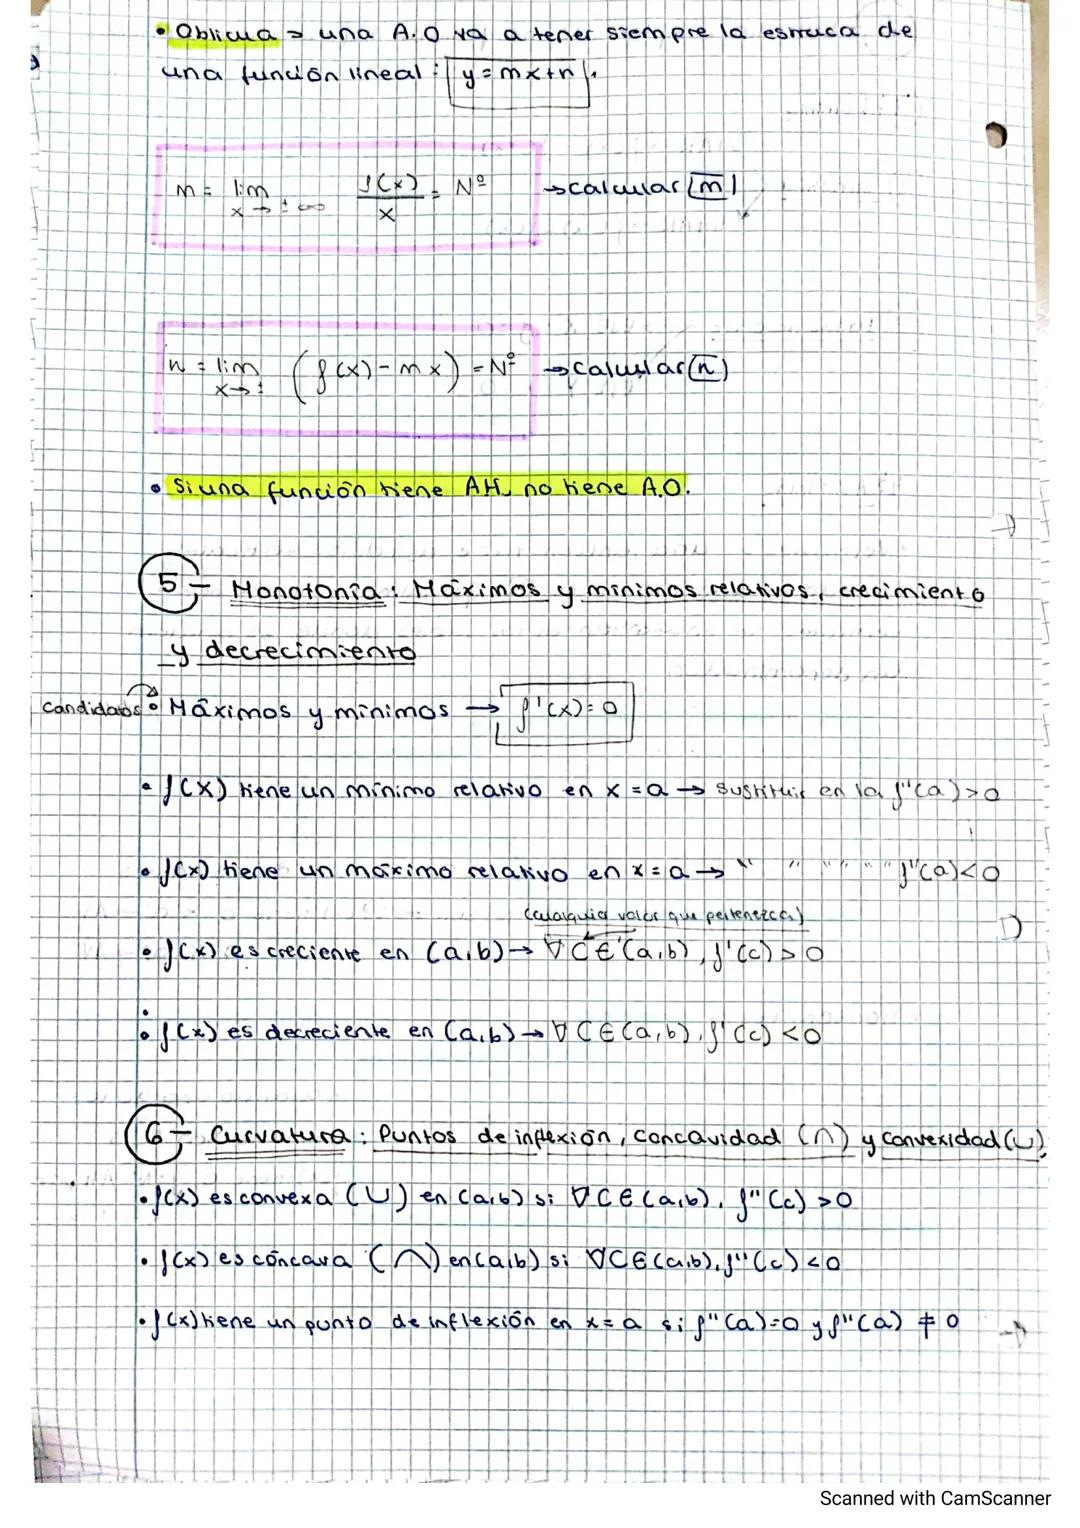 • Oblicua → una A.O va a tener siempre la estruca de
una función lineal: y = mx+n.
m = lim x→±∞ f(x)/x = Nº → calcular m
n = lim x→± (f(x) - mx) = Nº → calcular n
• Si una función tiene AH, no tiene A.O.
5- Monotonía: Máximos y mínimos relativos, crecimiento
y decrecimiento
candidatos • Máximos y mínimos → f'(x)=0
• f(x) tiene un mínimo relativo en x=a → sustituir en la f''(a)>0
• f(x) tiene un máximo relativo en x=a → " " " " " f''(a)<0
(cualquier valor que pertenezca)
• f(x) es creciente en (a,b) → ∀ C ∈ (a,b), f'(c)>0
• f(x) es decreciente en (a,b) → ∀ C ∈ (a,b), f'(c)<0
6- Curvatura: Puntos de inflexión, concavidad (∩) y convexidad (∪)
• f(x) es convexa (∪) en (a,b) si ∀ C ∈ (a,b), f''(c)>0
• f(x) es cóncava (∩) en (a,b) si ∀ C ∈ (a,b), f''(c)<0
• f(x) tiene un punto de inflexión en x=a si f''(a)=0 y f'''(a) ≠ 0
Scanned with CamScanner